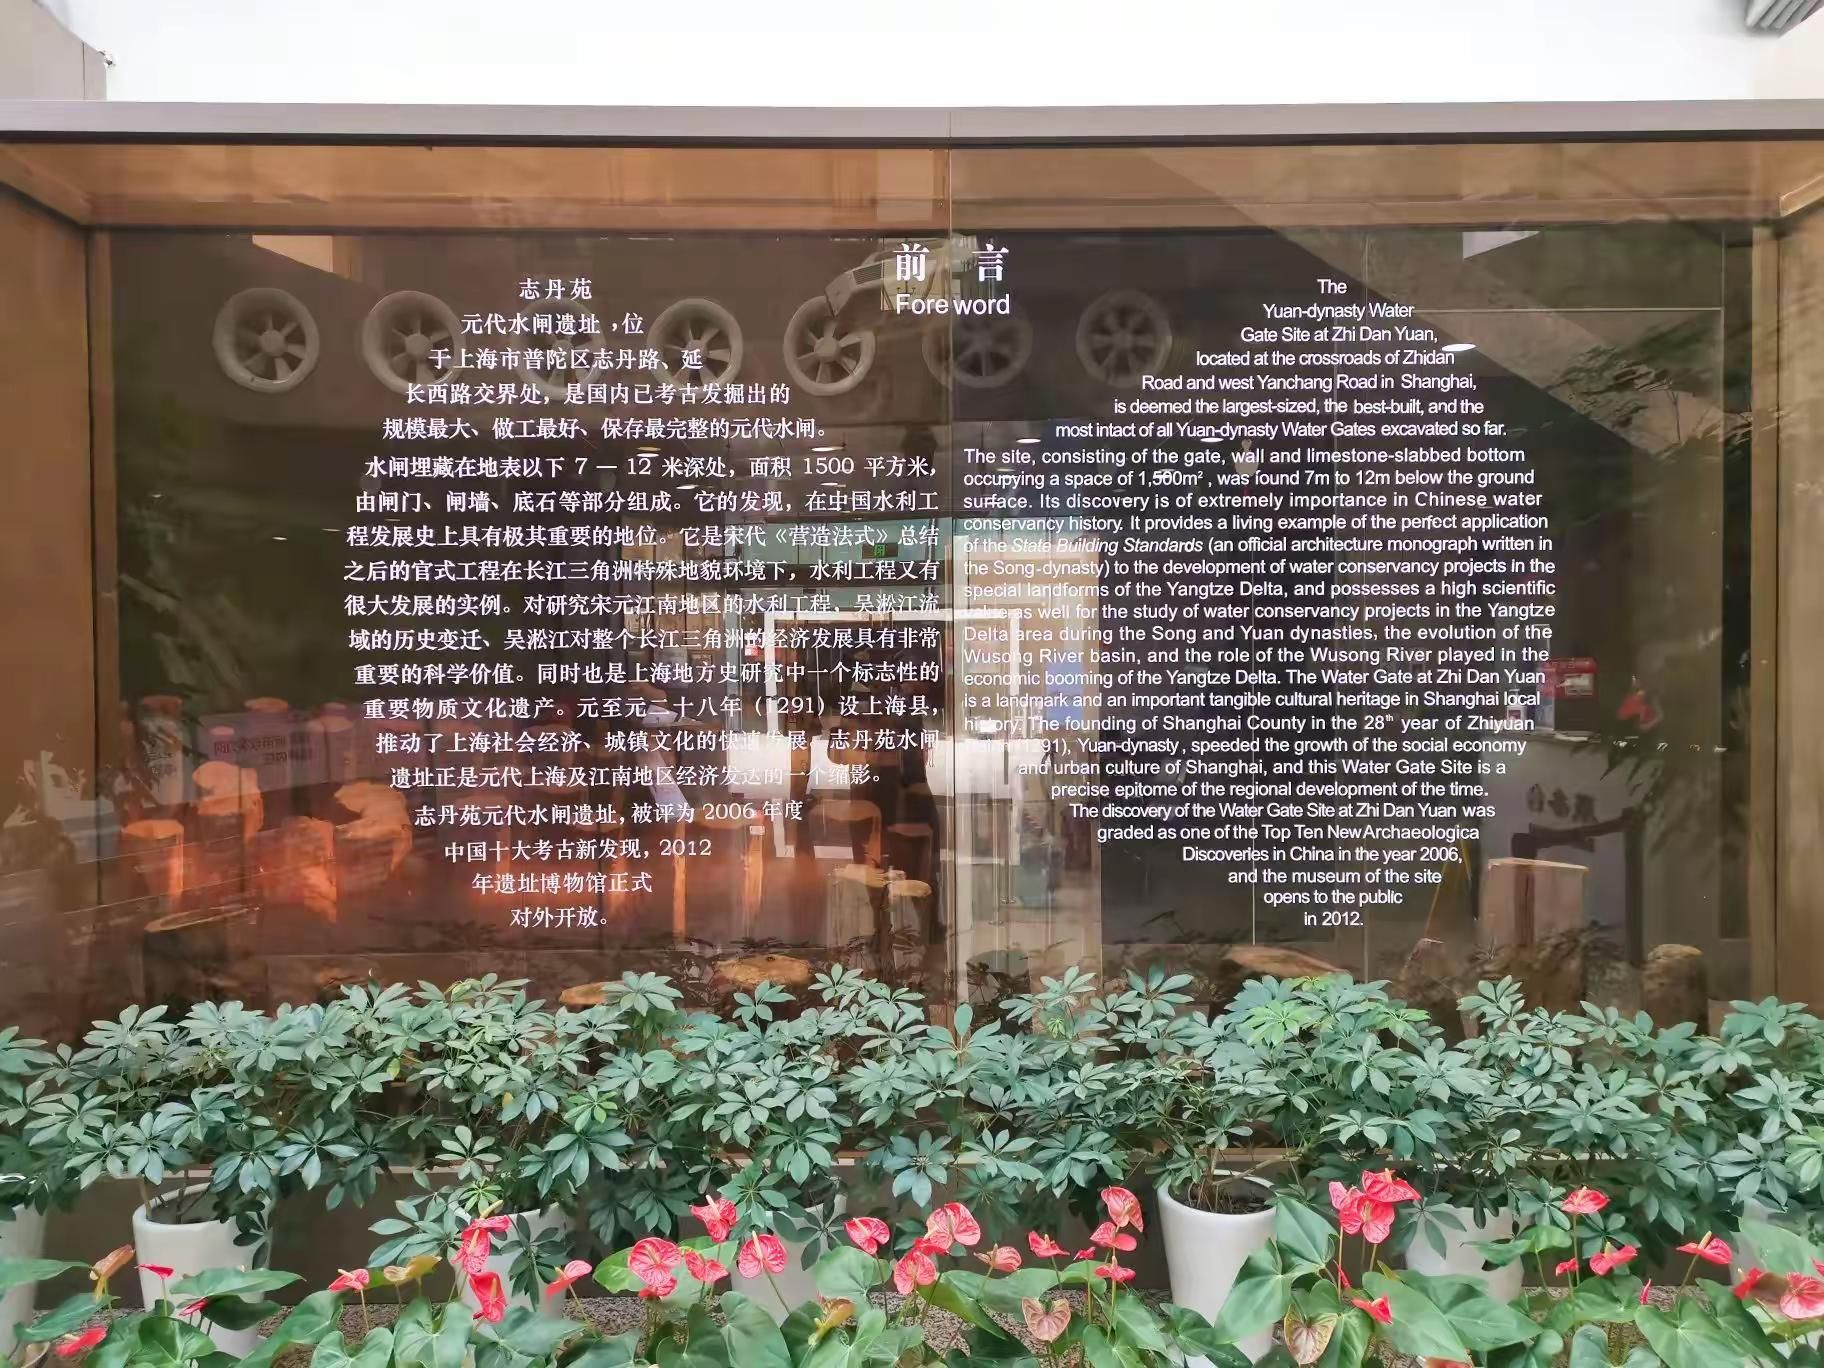 前 言
Foreword
志丹苑
元代水闸遗址，位
于上海市普陀区志丹路、延
长西路交界处，是国内已考古发掘出的
规模最大、做工最好、保存最完整的元代水闸。
水闸埋藏在地表以下 7 — 12 米深处，面积 1500 平方米，
由闸门、闸墙、底石等部分组成。它的发现，在中国水利工
程发展史上具有极其重要的地位。它是宋代《营造法式》总结
之后的官式工程在长江三角洲特殊地貌环境下，水利工程又有
很大发展的实例。对研究宋元江南地区的水利工程，吴淞江流
域的历史变迁、吴淞江对整个长江三角洲的经济发展具有非常
重要的科学价值。同时也是上海地方史研究中一个标志性的
重要物质文化遗产。元至元二十八年（1291）设上海县，
推动了上海社会经济、城镇文化的快速发展。志丹苑水闸
遗址正是元代上海及江南地区经济发达的一个缩影。
志丹苑元代水闸遗址，被评为 2006 年度
中国十大考古新发现，2012
年遗址博物馆正式
对外开放。
The
Yuan-dynasty Water
Gate Site at Zhi Dan Yuan,
located at the crossroads of Zhidan
Road and west Yanchang Road in Shanghai,
is deemed the largest-sized, the best-built, and the
most intact of all Yuan-dynasty Water Gates excavated so far.
The site, consisting of the gate, wall and limestone-slabbed bottom
occupying a space of 1,500m², was found 7m to 12m below the ground
surface. Its discovery is of extremely importance in Chinese water
conservancy history. It provides a living example of the perfect application
of the State Building Standards (an official architecture monograph written in
the Song-dynasty) to the development of water conservancy projects in the
special landforms of the Yangtze Delta, and possesses a high scientific
value as well for the study of water conservancy projects in the Yangtze
Delta area during the Song and Yuan dynasties, the evolution of the
Wusong River basin, and the role of the Wusong River played in the
economic booming of the Yangtze Delta. The Water Gate at Zhi Dan Yuan
is a landmark and an important tangible cultural heritage in Shanghai local
history. The founding of Shanghai County in the 28th year of Zhiyuan
(1291), Yuan-dynasty, speeded the growth of the social economy
and urban culture of Shanghai, and this Water Gate Site is a
precise epitome of the regional development of the time.
The discovery of the Water Gate Site at Zhi Dan Yuan was
graded as one of the Top Ten New Archaeologica
Discoveries in China in the year 2006,
and the museum of the site
opens to the public
in 2012.